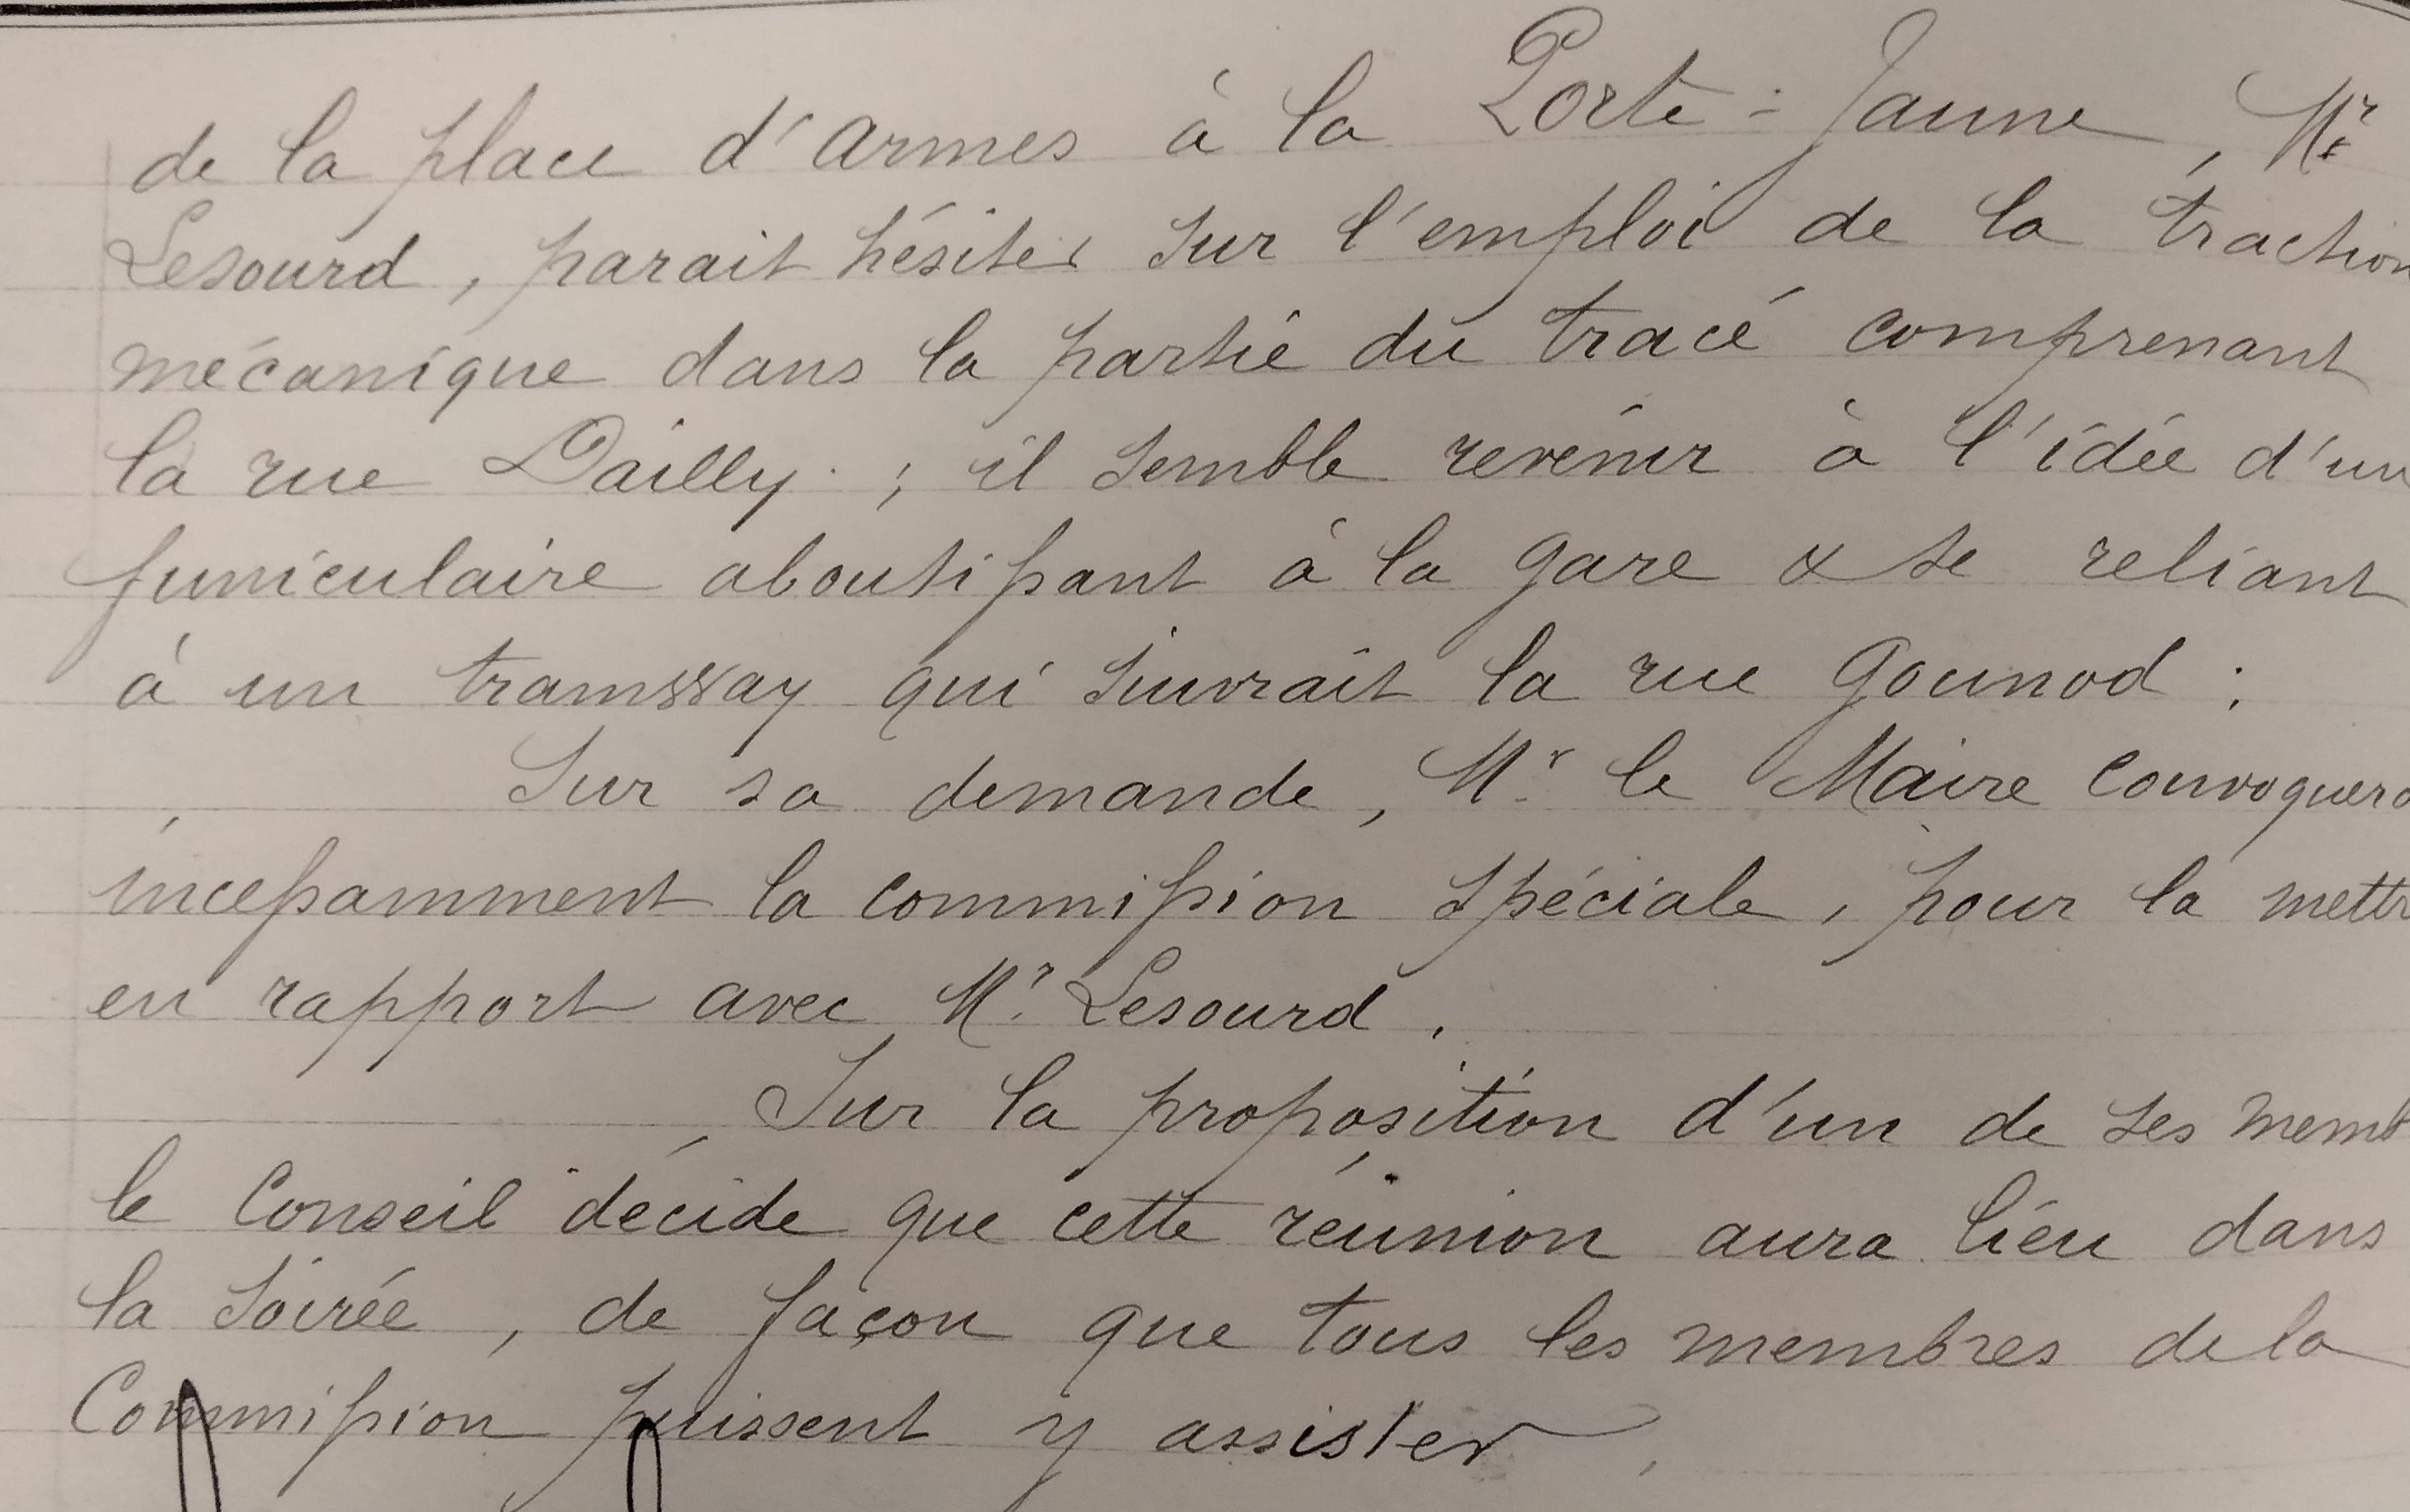 de la place d'armes à la Porte-Jaune, Mr
Lesourd, parait hésiter sur l'emploi de la traction
mécanique dans la partie du tracé comprenant
la rue Dailly ; il semble revenir à l'idée d'un
funiculaire aboutissant à la gare & se reliant
à un tramway qui suivrait la rue Gounod ;
Sur sa demande, Mr le Maire convoquera
incessamment la commission spéciale, pour la mettr
en rapport avec Mr Lesourd.
Sur la proposition d'un de ses memb
le Conseil décide que cette réunion aura lieu dans
la soirée, de façon que tous les membres de la
Commission puissent y assister.